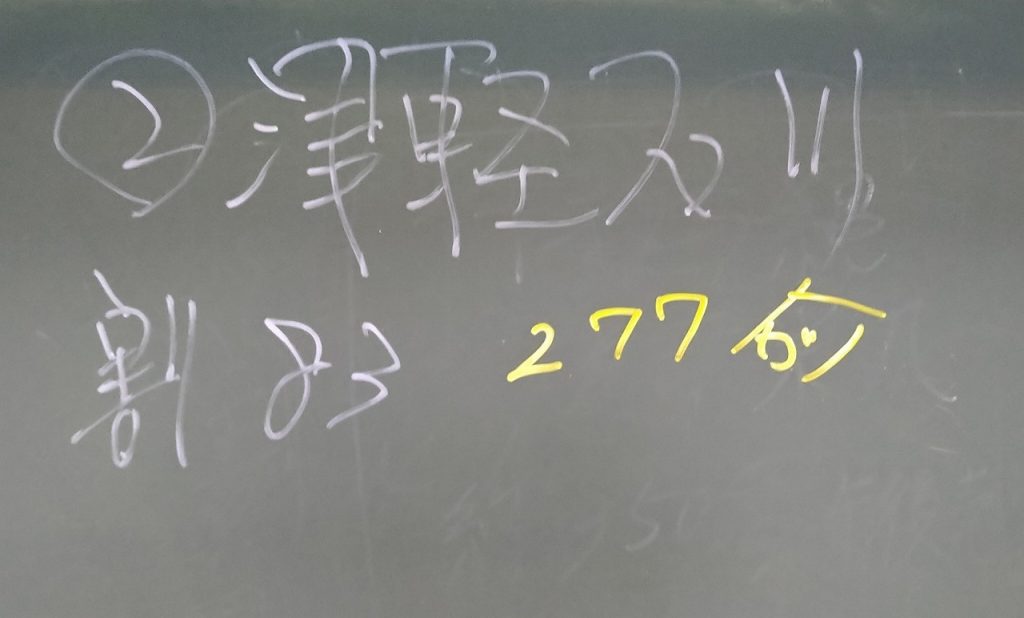 ②津軽石川
割 83 277